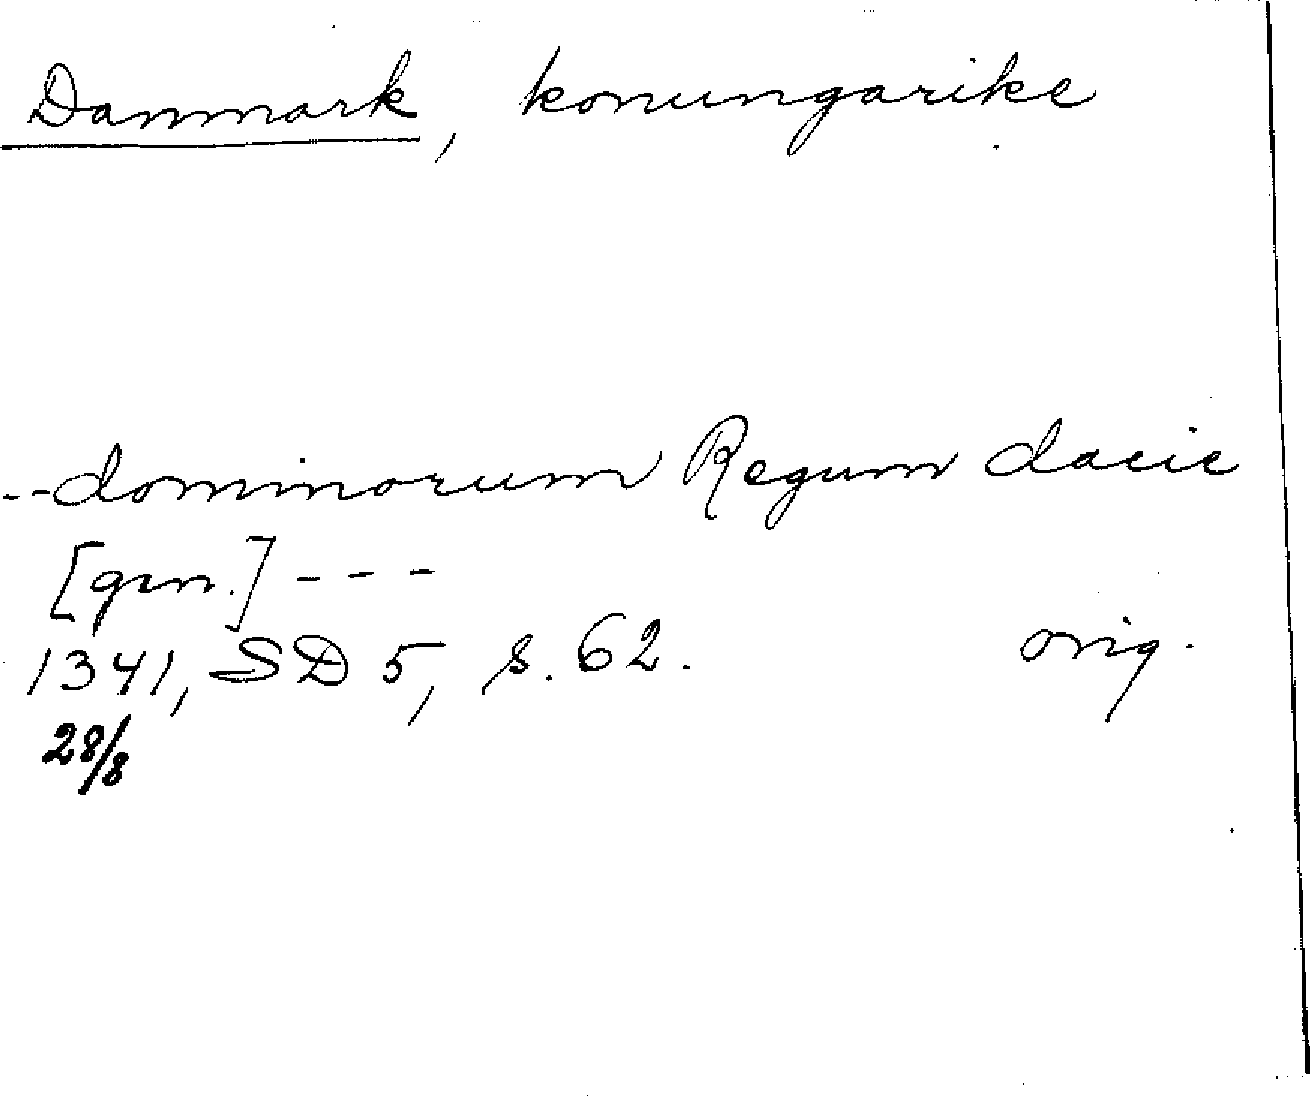 Danmark, konungarike
--dominorum Regum dacie
[gen.] - - -
1341, SD 5, s. 62. orig.
28/8